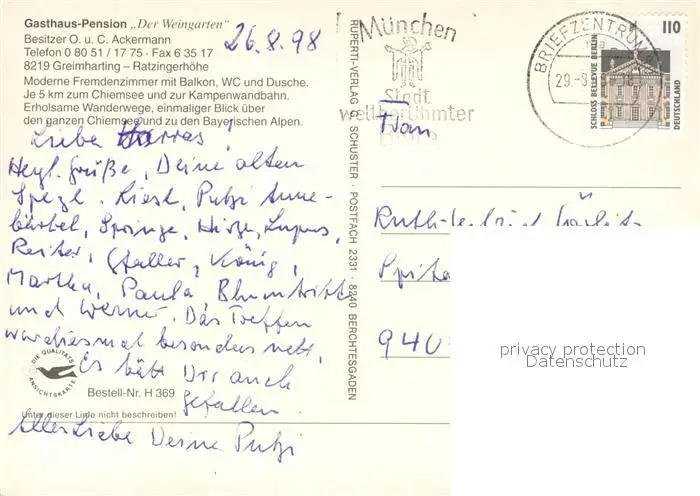 Gasthaus-Pension „Der Weingarten"
Besitzer O. u. C. Ackermann
Telefon 0 80 51 / 17 75 · Fax 6 35 17
8219 Greimharting – Ratzingerhöhe
Moderne Fremdenzimmer mit Balkon, WC und Dusche.
Je 5 km zum Chiemsee und zur Kampenwandbahn.
Erholsame Wanderwege, einmaliger Blick über
den ganzen Chiemsee und zu den Bayerischen Alpen.
26.8.98
Liebe Harras!
Herzl. Grüße, Deine alten
Spezl. Liesl, Putzi Anne-
bärbel, Springe, Hirze, Lupus,
Reiter, Gstaller, König,
Martha, Paula Blumtritt
und Werner. Das Treffen
war diesmal besonders nett.
Es hätt Dir auch
gefallen.
Alles Liebe Deine Putzi
DIE QUALITÄTS
ANSICHTSKARTE
Bestell-Nr. H 369
Unter dieser Linie nicht beschreiben!
RUPERTI-VERLAG G. SCHUSTER · POSTFACH 2331 · 8240 BERCHTESGADEN
München
Stadt
weltberühmter
BRIEFZENTRUM
29.-8.
110
SCHLOSS BELLEVUE BERLIN
DEUTSCHLAND
Frau
Ruth-
Spita
940
privacy protection
Datenschutz